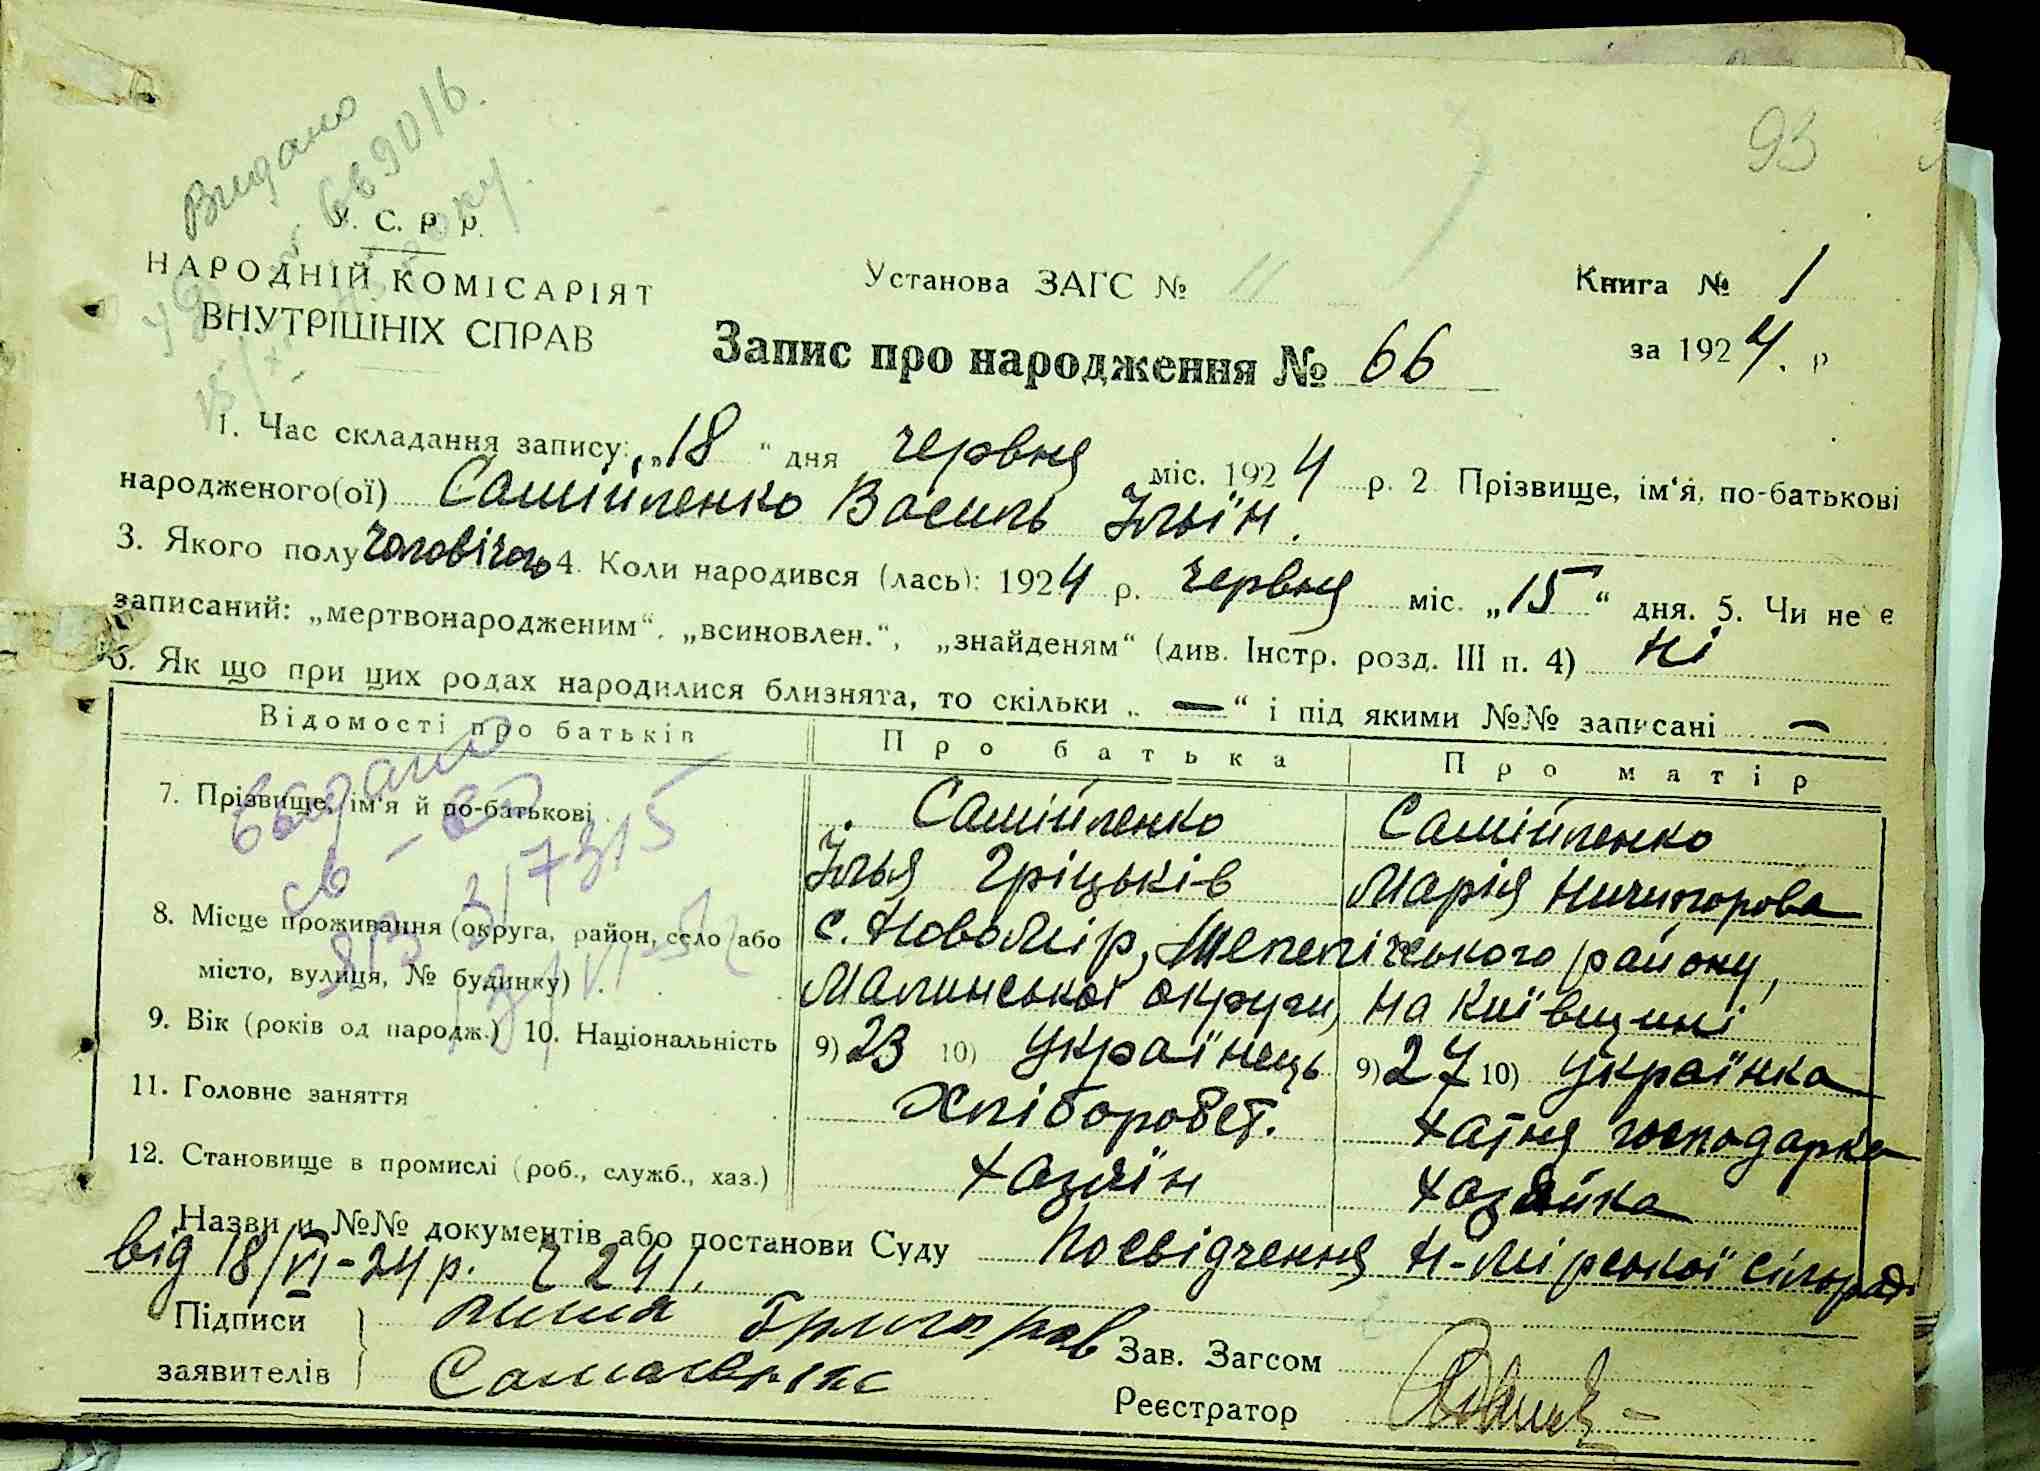 93
Видано
У. С. Р. Р.
НАРОДНІЙ КОМІСАРІЯТ
ВНУТРІШНІХ СПРАВ
Установа ЗАГС № 11
Книга № 1
за 1924. р
Запис про народження № 66
1. Час складання запису: „18“ дня червня міс. 1924 р. 2 Прізвище, ім'я, по-батькові
народженого(ої) Самійленко Василь Ільїн.
3. Якого полу чоловічого 4. Коли народився (лась): 1924 р. червня міс. „15“ дня. 5. Чи не є
записаний: „мертвонародженим“, „всиновлен.“, „знайденям“ (див. Інстр. розд. III п. 4) ні
6. Як що при цих родах народилися близнята, то скільки „—“ і під якими №№ записані —
Відомості про батьків Про батька Про матір
7. Прізвище, ім'я й по-батькові Самійленко Самійленко
Ілья Гріцьків Марія Ничипорова
8. Місце проживання (округа, район, село або с. Новомір, району,
місто, вулиця, № будинку) Малинської округи, на Київщині
9. Вік (років од народж.) 10. Національність 9) 23 10) Українець 9) 27 10) Українка
11. Головне заняття Хліборобст. хатня господарка
12. Становище в промислі (роб., служб., хаз.) хазяїн хазяйка
Видано
св-во
Назви и №№ документів або постанови Суду Посвідчення Н-Мірської сільради
від 18/VI-24 р. 2241.
Підписи
заявителів
Зав. Загсом
Реєстратор